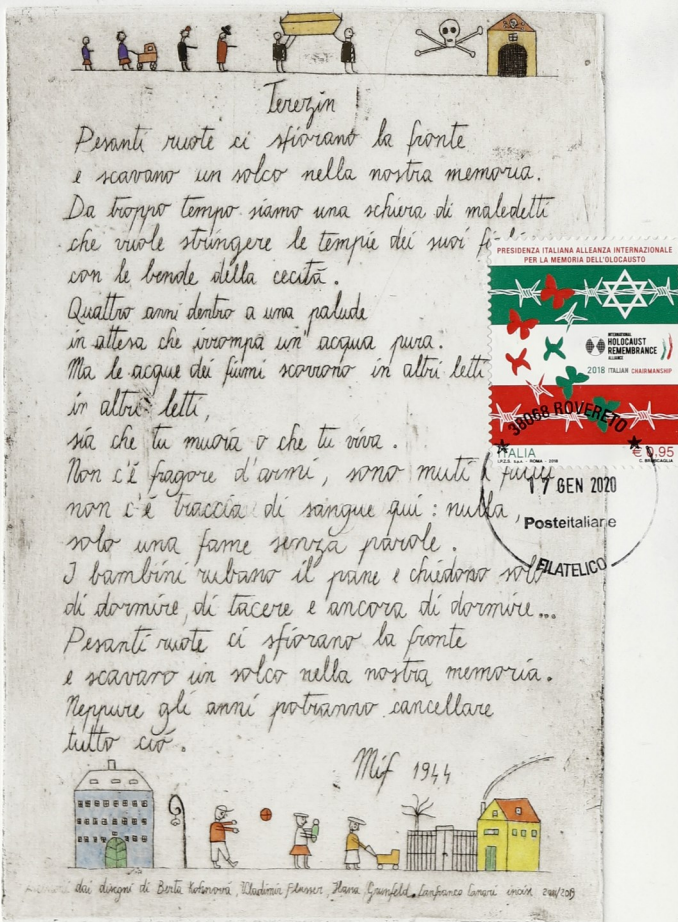 Terezin
Pesanti ruote ci sfiorano la fronte
e scavano un solco nella nostra memoria.
Da troppo tempo siamo una schiera di maledetti
che vuole stringere le tempie dei suoi
con le bende della cecità.
Quattro anni dentro a una palude
in attesa che irrompa un' acqua pura.
Ma le acque dei fiumi scorrono in altri letti
in altri letti,
sia che tu muoia o che tu viva.
Non c'è fragore d'armi, sono muti i fucili
non c'è traccia di sangue qui : nulla,
solo una fame senza parole.
I bambini rubano il pane e chiedono solo
di dormire, di tacere e ancora di dormire...
Pesanti ruote ci sfiorano la fronte
e scavano un solco nella nostra memoria.
Neppure gli anni potranno cancellare
tutto ciò.
Mif 1944
dai disegni di Berta Vladimir Flusser, Hana Grunfeld. Lanfranco Lanari
PRESIDENZA ITALIANA ALLEANZA INTERNAZIONALE
PER LA MEMORIA DELL'OLOCAUSTO
INTERNATIONAL
HOLOCAUST
REMEMBRANCE
ALLIANCE
2018 ITALIAN CHAIRMANSHIP
ITALIA € 0.95
I.P.Z.S. S.p.A. - ROMA - 2018
38068 ROVERETO
17 GEN 2020
Posteitaliane
FILATELICO